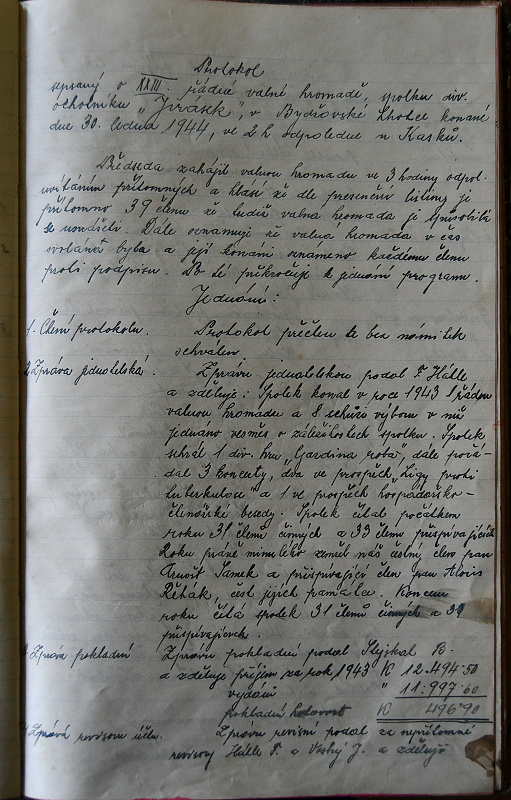 Protokol
sepsaný o XXIII. řádné valné hromadě, spolku div.
ochotníku „Jirásek", v Bydžovské Lhotce konané
dne 30. ledna 1944, ve 2 h. odpoledne u Kasků.
Předseda zahájil valnou hromadu ve 3 hodiny odpol.
uvítáním přítomných a hlásí že dle presenční listiny je
přítomno 39 členu že tudíž valná hromada je způsobilá
k usnášeti. Dále oznamuje že valná hromada v čas
svolána byla a její konání oznameno každému členu
proti podpisu. Po té přikročuje k jednání programu.
Jednání:
1. Čtení protokolu. Protokol přečten te bez námitek
schválen
2. Zpráva jednatelská. Zprávu jednatelskou podal F. Hálle
a zděluje: Spolek konal v roce 1943 1 řádnou
valnou hromadu a 8 schůzí výboru v nů
jednáno vesměs o záležitostech spolku. Spolek
sehrál 1 div. hru „Gardina roba", dále pořá-
dal 3 koncerty, dva ve prospěch „Ligy proti
tuberkulose" a 1 ve prospěch hospodářsko-
čtenářské besedy. Spolek čítal počátkem
roku 31 členů činných a 33 členu přispívajících
Roku právě minulého zemřel náš čestný člen pan
Arnošt Samek a přispívající člen pan Alois
Řehák, čest jejich památce. Koncem
roku čítá spolek 31 členů činných a 31
přispívajících.
Zpráva pokladní Zprávu pokladní podal Stejskal B.
a zděluje příjem za rok 1943 K 12.494·50
vydání " 11.997·60
pokladní hotovost K 496·90
Zpráva revisoru účtu. Zprávu revisní podal za nepřítomné
revisory Hálle F. a Veselý J. a zděluje